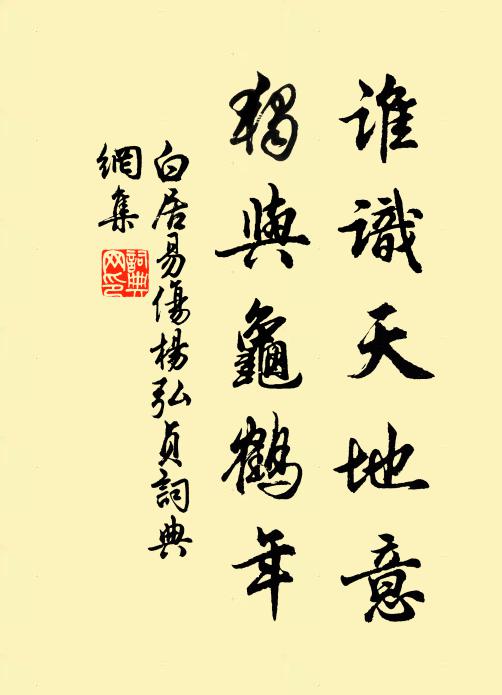 誰識天地意
獨與龜鶴年
白居易傷楊弘貞詞典
網集
詞典
网印